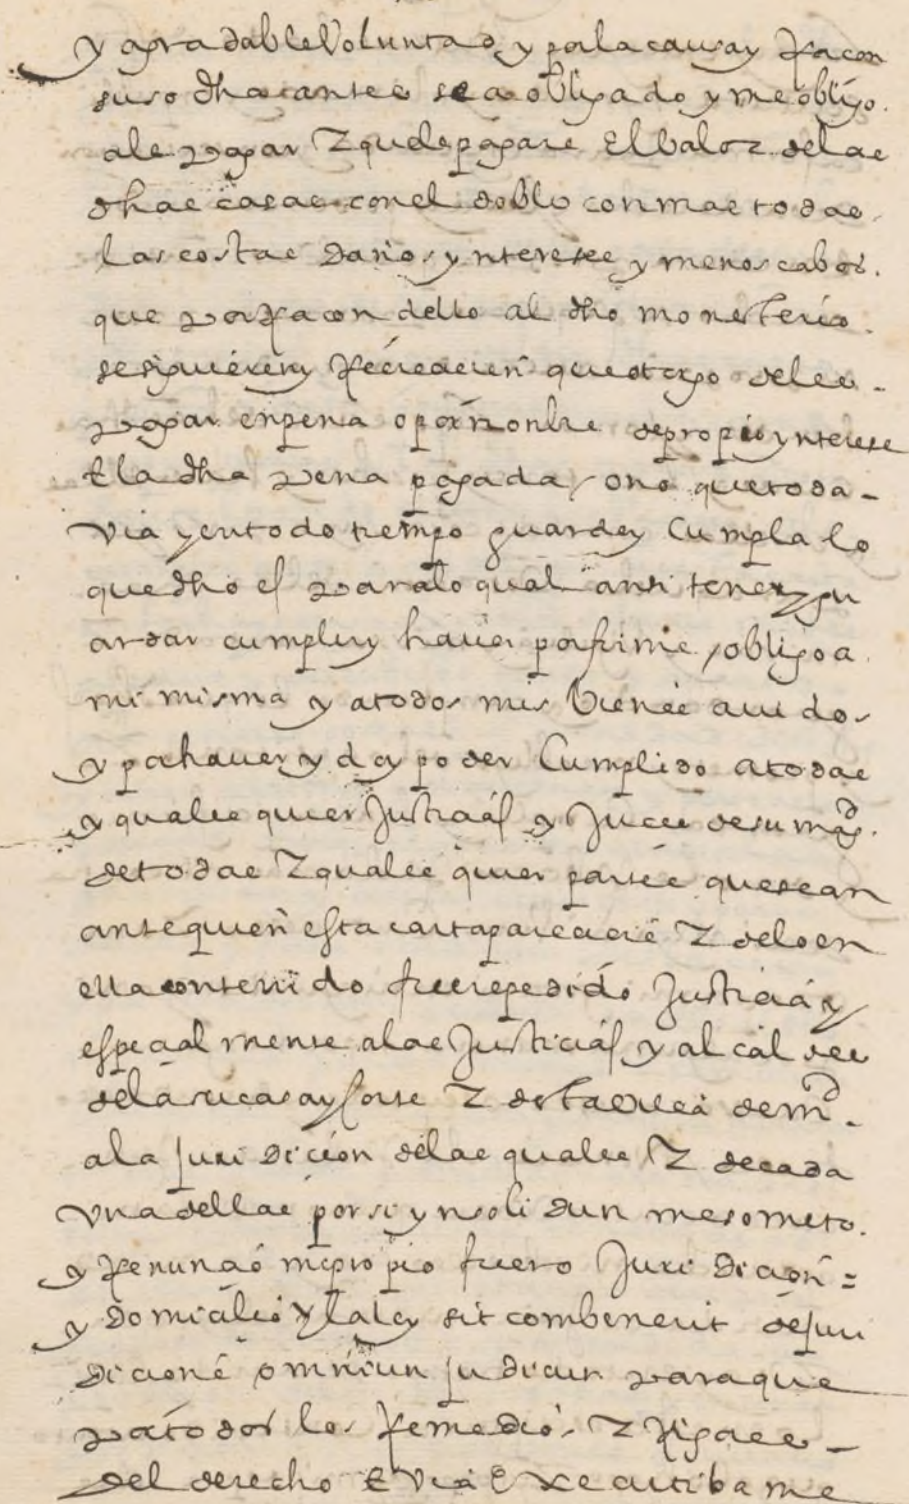 y agradable Voluntad y por la causa y Racon
suso dha cantee sea obligado y me obligo
a le pagar Z que le pagare El balor de las
dhas casas con el doblo con mas todas
las costas daños yntereses y menoscabos
que por Racon dello al dho monesterio
se siguieren y Recrecieren que otorgo de les
pagar en pena o por nonbre de propio ynterese
E la dha pena pagada / o no que toda-
via y en todo tiempo guarde y Cumpla lo
que dho es para lo qual ansi tener y gu
ardar cumplir y haver por firme / obligo a
mi misma y a todos mis bienes avidos
y por haver y doy poder Cumplido a todas
y quales quier Justicias y Jueces de su magd.
de todas Z quales quier partes que sean
ante quien esta carta pareciere Z de lo en
ella contenido fuere pedido Justicia y
especial mente a las Justicias y alcaldes
de la su casa y Corte Z desta villa de md.
a la Juridicion de las quales Z de cada
Una dellas por si ynsolidun me someto
y Renuncio mi propio fuero Juridicion =
y domicilio y la ley sit combenerit de juri
dicione omniun judicun para que
por todos los Remedios Z Rigores
del derecho E via Executiba me